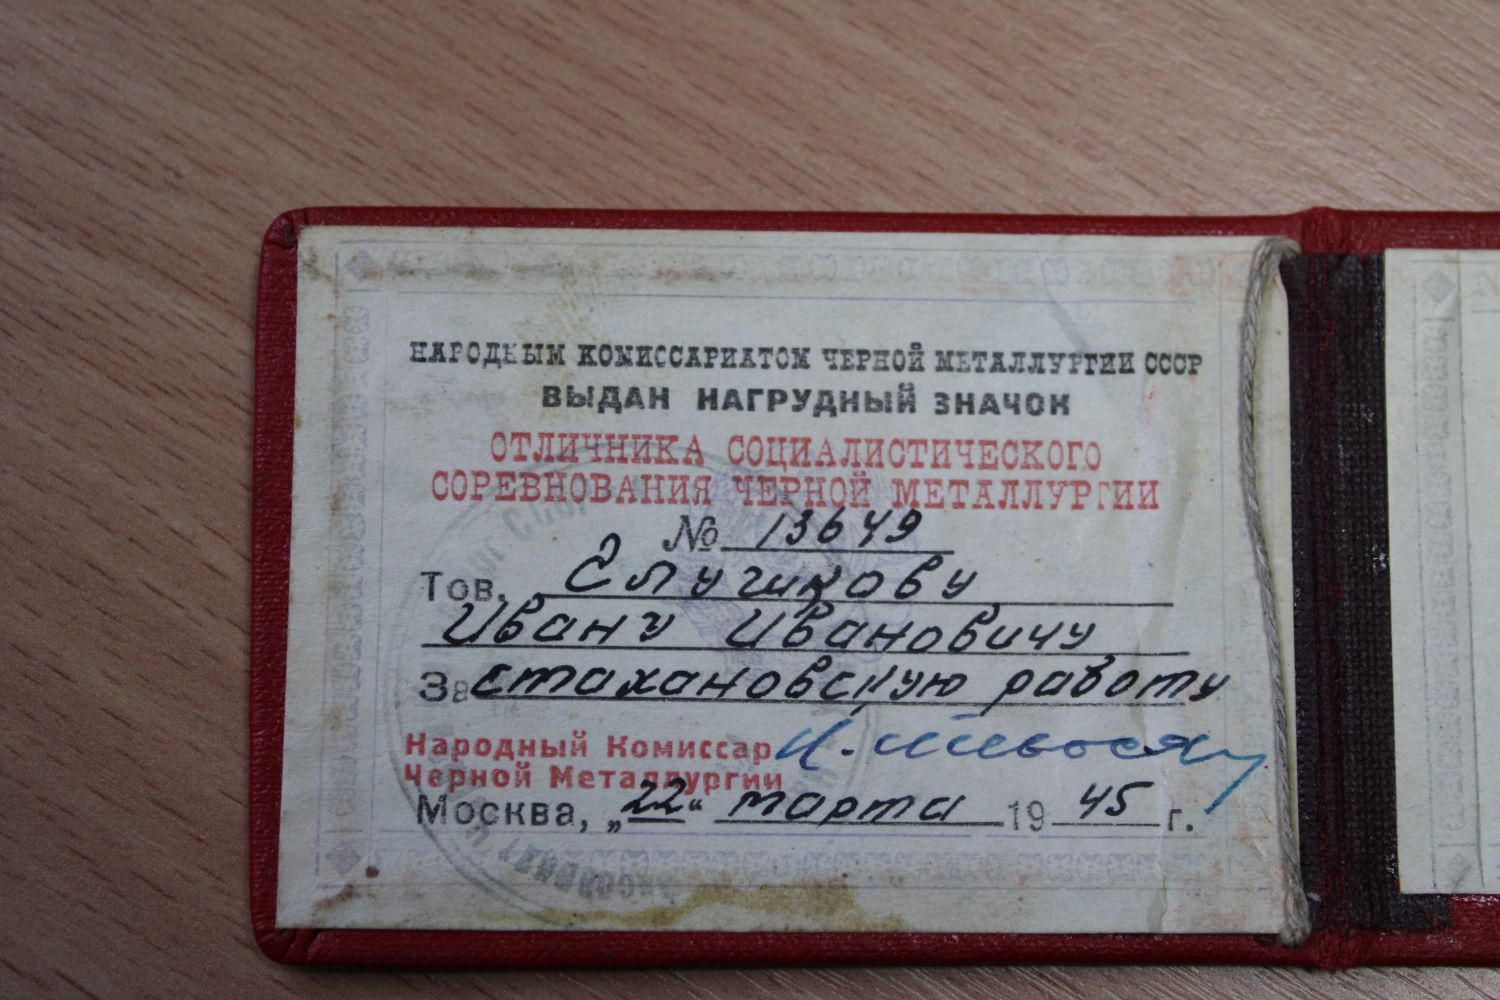 НАРОДНЫМ КОМИССАРИАТОМ ЧЕРНОЙ МЕТАЛЛУРГИИ СССР
ВЫДАН НАГРУДНЫЙ ЗНАЧОК
ОТЛИЧНИКА СОЦИАЛИСТИЧЕСКОГО
СОРЕВНОВАНИЯ ЧЕРНОЙ МЕТАЛЛУРГИИ
№ 13649
Тов.
Ивану Ивановичу
За стахановскую работу
Народный Комиссар
Черной Металлургии
Москва, „22“ марта 1945 г.